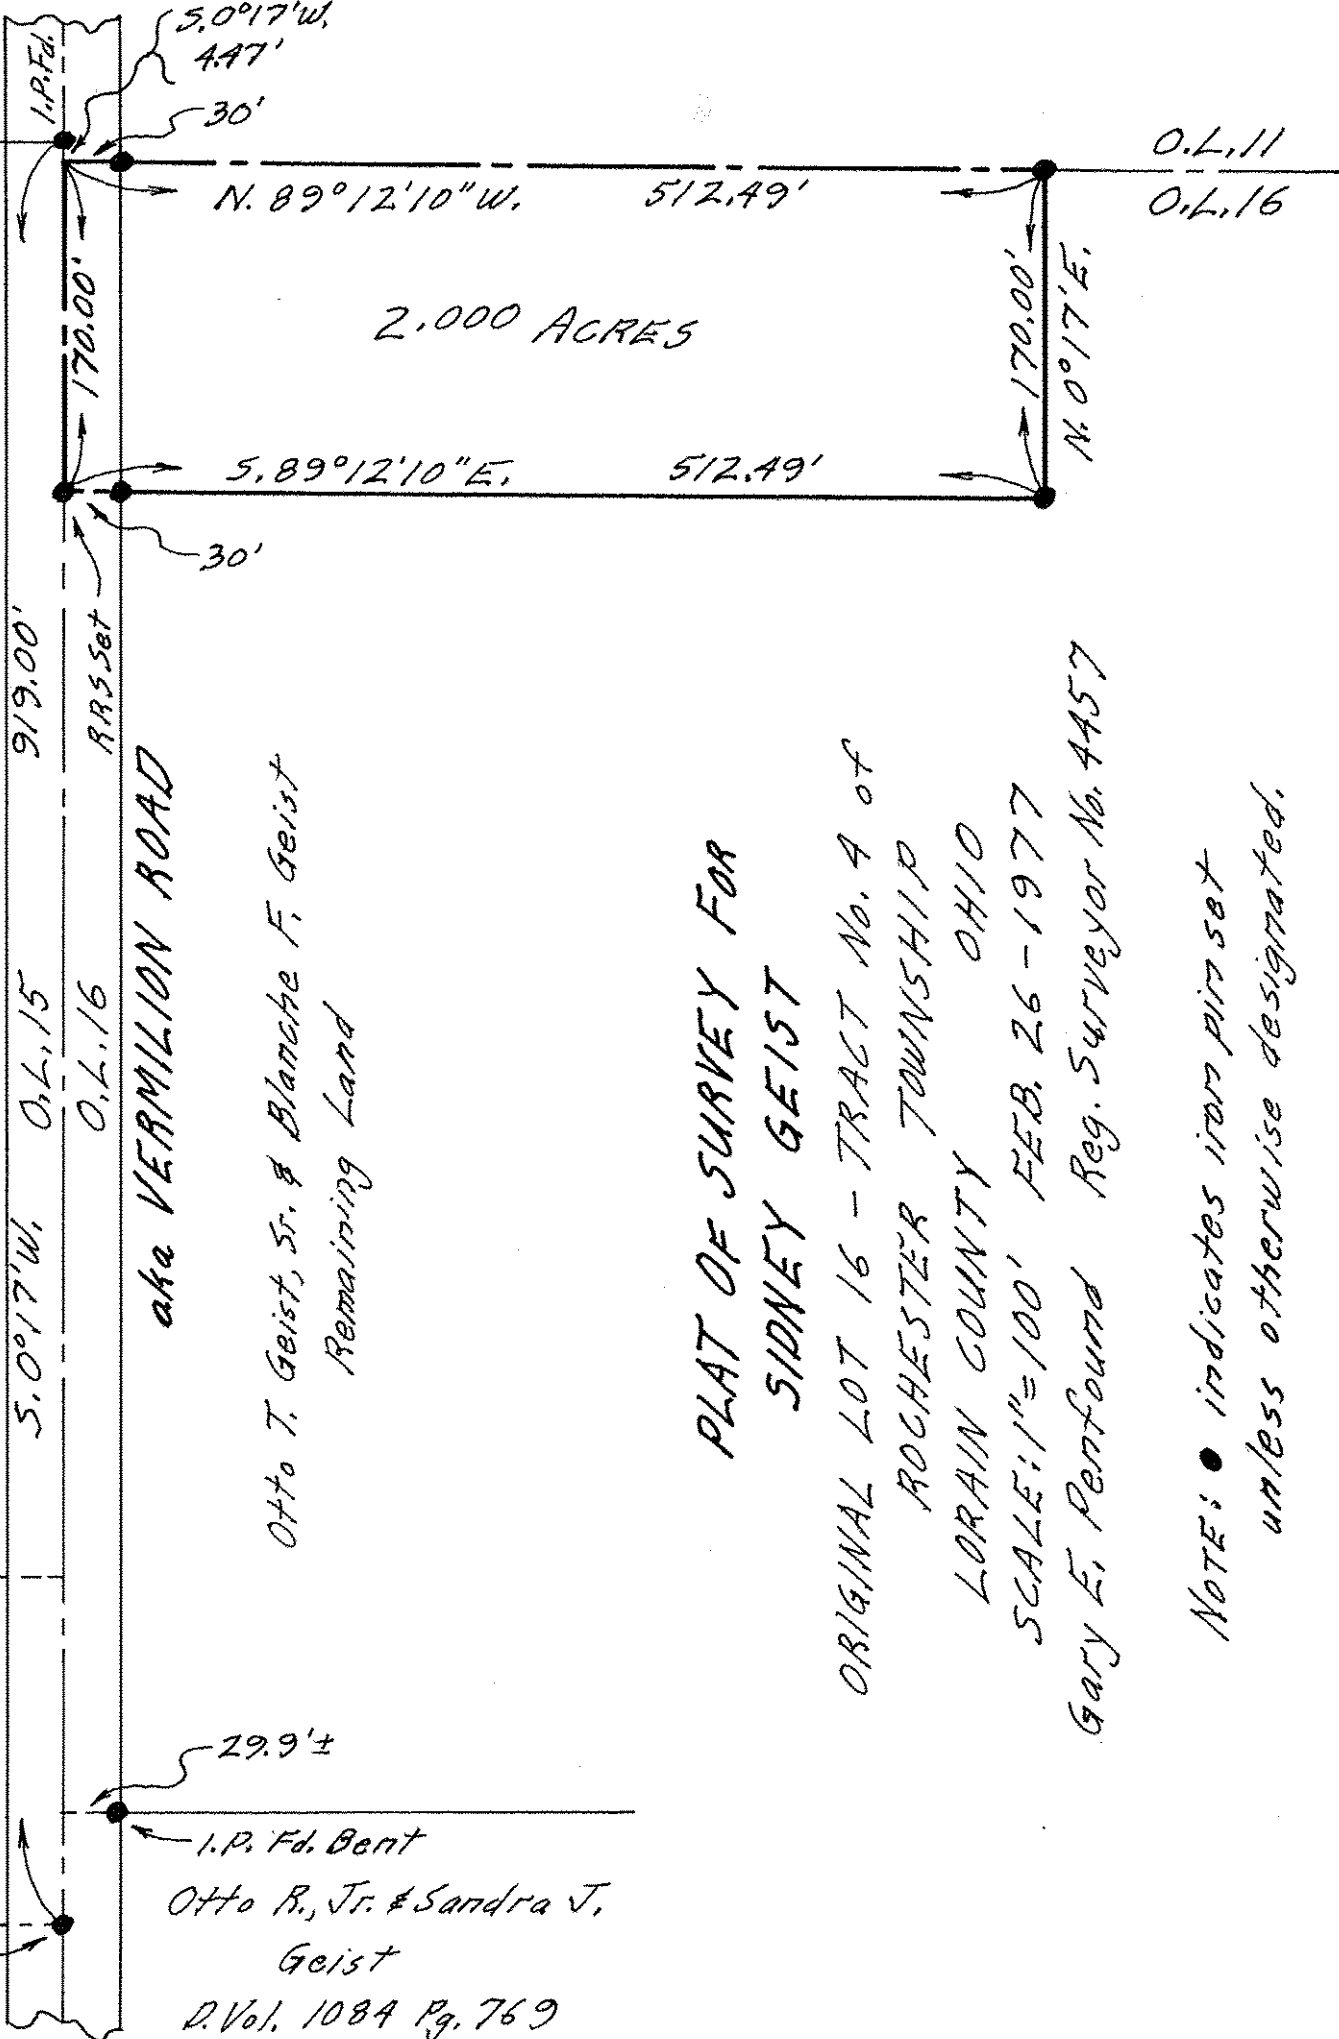 S.0°17'W.
4.47'
I.P.Fd.
30'
O.L.11
O.L.16
N. 89°12'10"W. 512.49'
170.00'
2.000 ACRES
170.00'
N. 0°17'E.
S. 89°12'10"E. 512.49'
30'
S.0°17'W. O.L.15 919.00'
O.L.16 RRS Set
aka VERMILION ROAD
Otto T. Geist, Sr. & Blanche F. Geist
Remaining Land
PLAT OF SURVEY FOR
SIDNEY GEIST
ORIGINAL LOT 16 - TRACT No. 4 of
ROCHESTER TOWNSHIP
LORAIN COUNTY OHIO
SCALE: 1"=100' FEB. 26 - 1977
Gary E. Penfound Reg. Surveyor No. 4457
NOTE: ● indicates iron pin set
unless otherwise designated.
29.9'±
I.P. Fd. Bent
Otto R., Jr. & Sandra J.
Geist
D.Vol. 1084 Pg. 769